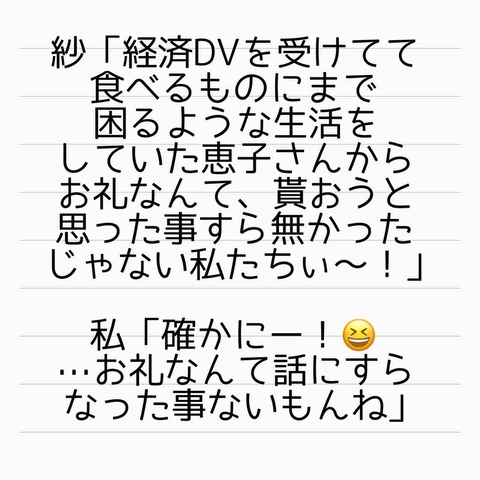 紗「経済DVを受けてて
食べるものにまで
困るような生活を
していた恵子さんから
お礼なんて、貰おうと
思った事すら無かった
じゃない私たちぃ〜！」
私「確かにー！😆
…お礼なんて話にすら
なった事ないもんね」